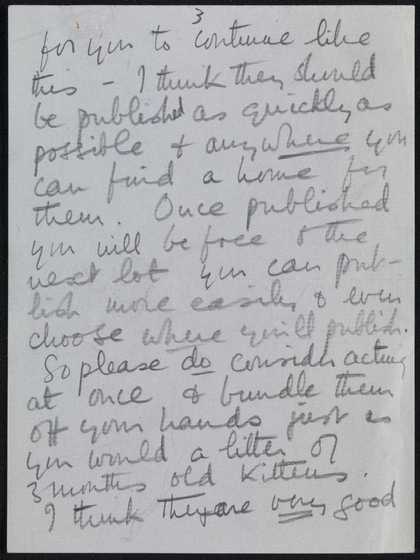 3
for you to continue like
this - I think they should
be published as quickly as
possible & anywhere you
can find a home for
them. Once published
you will be free & the
next lot you can pub-
lish more easily & even
choose where you'll publish.
So please do consider acting
at once & bundle them
off your hands just as
you would a litter of
3 months old kittens.
I think they are very good